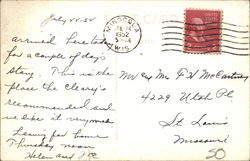 July 22-52
arrived here today
for a couple of days
stay. This is the
place the Cleary's
recommended and
we like it very much
Leaving for home
Thursday noon
Helen and
MINOCQUA
1952
WIS.
Mr & Mrs F W McCartney
4229 Utah Pl
St Louis
Missouri
50